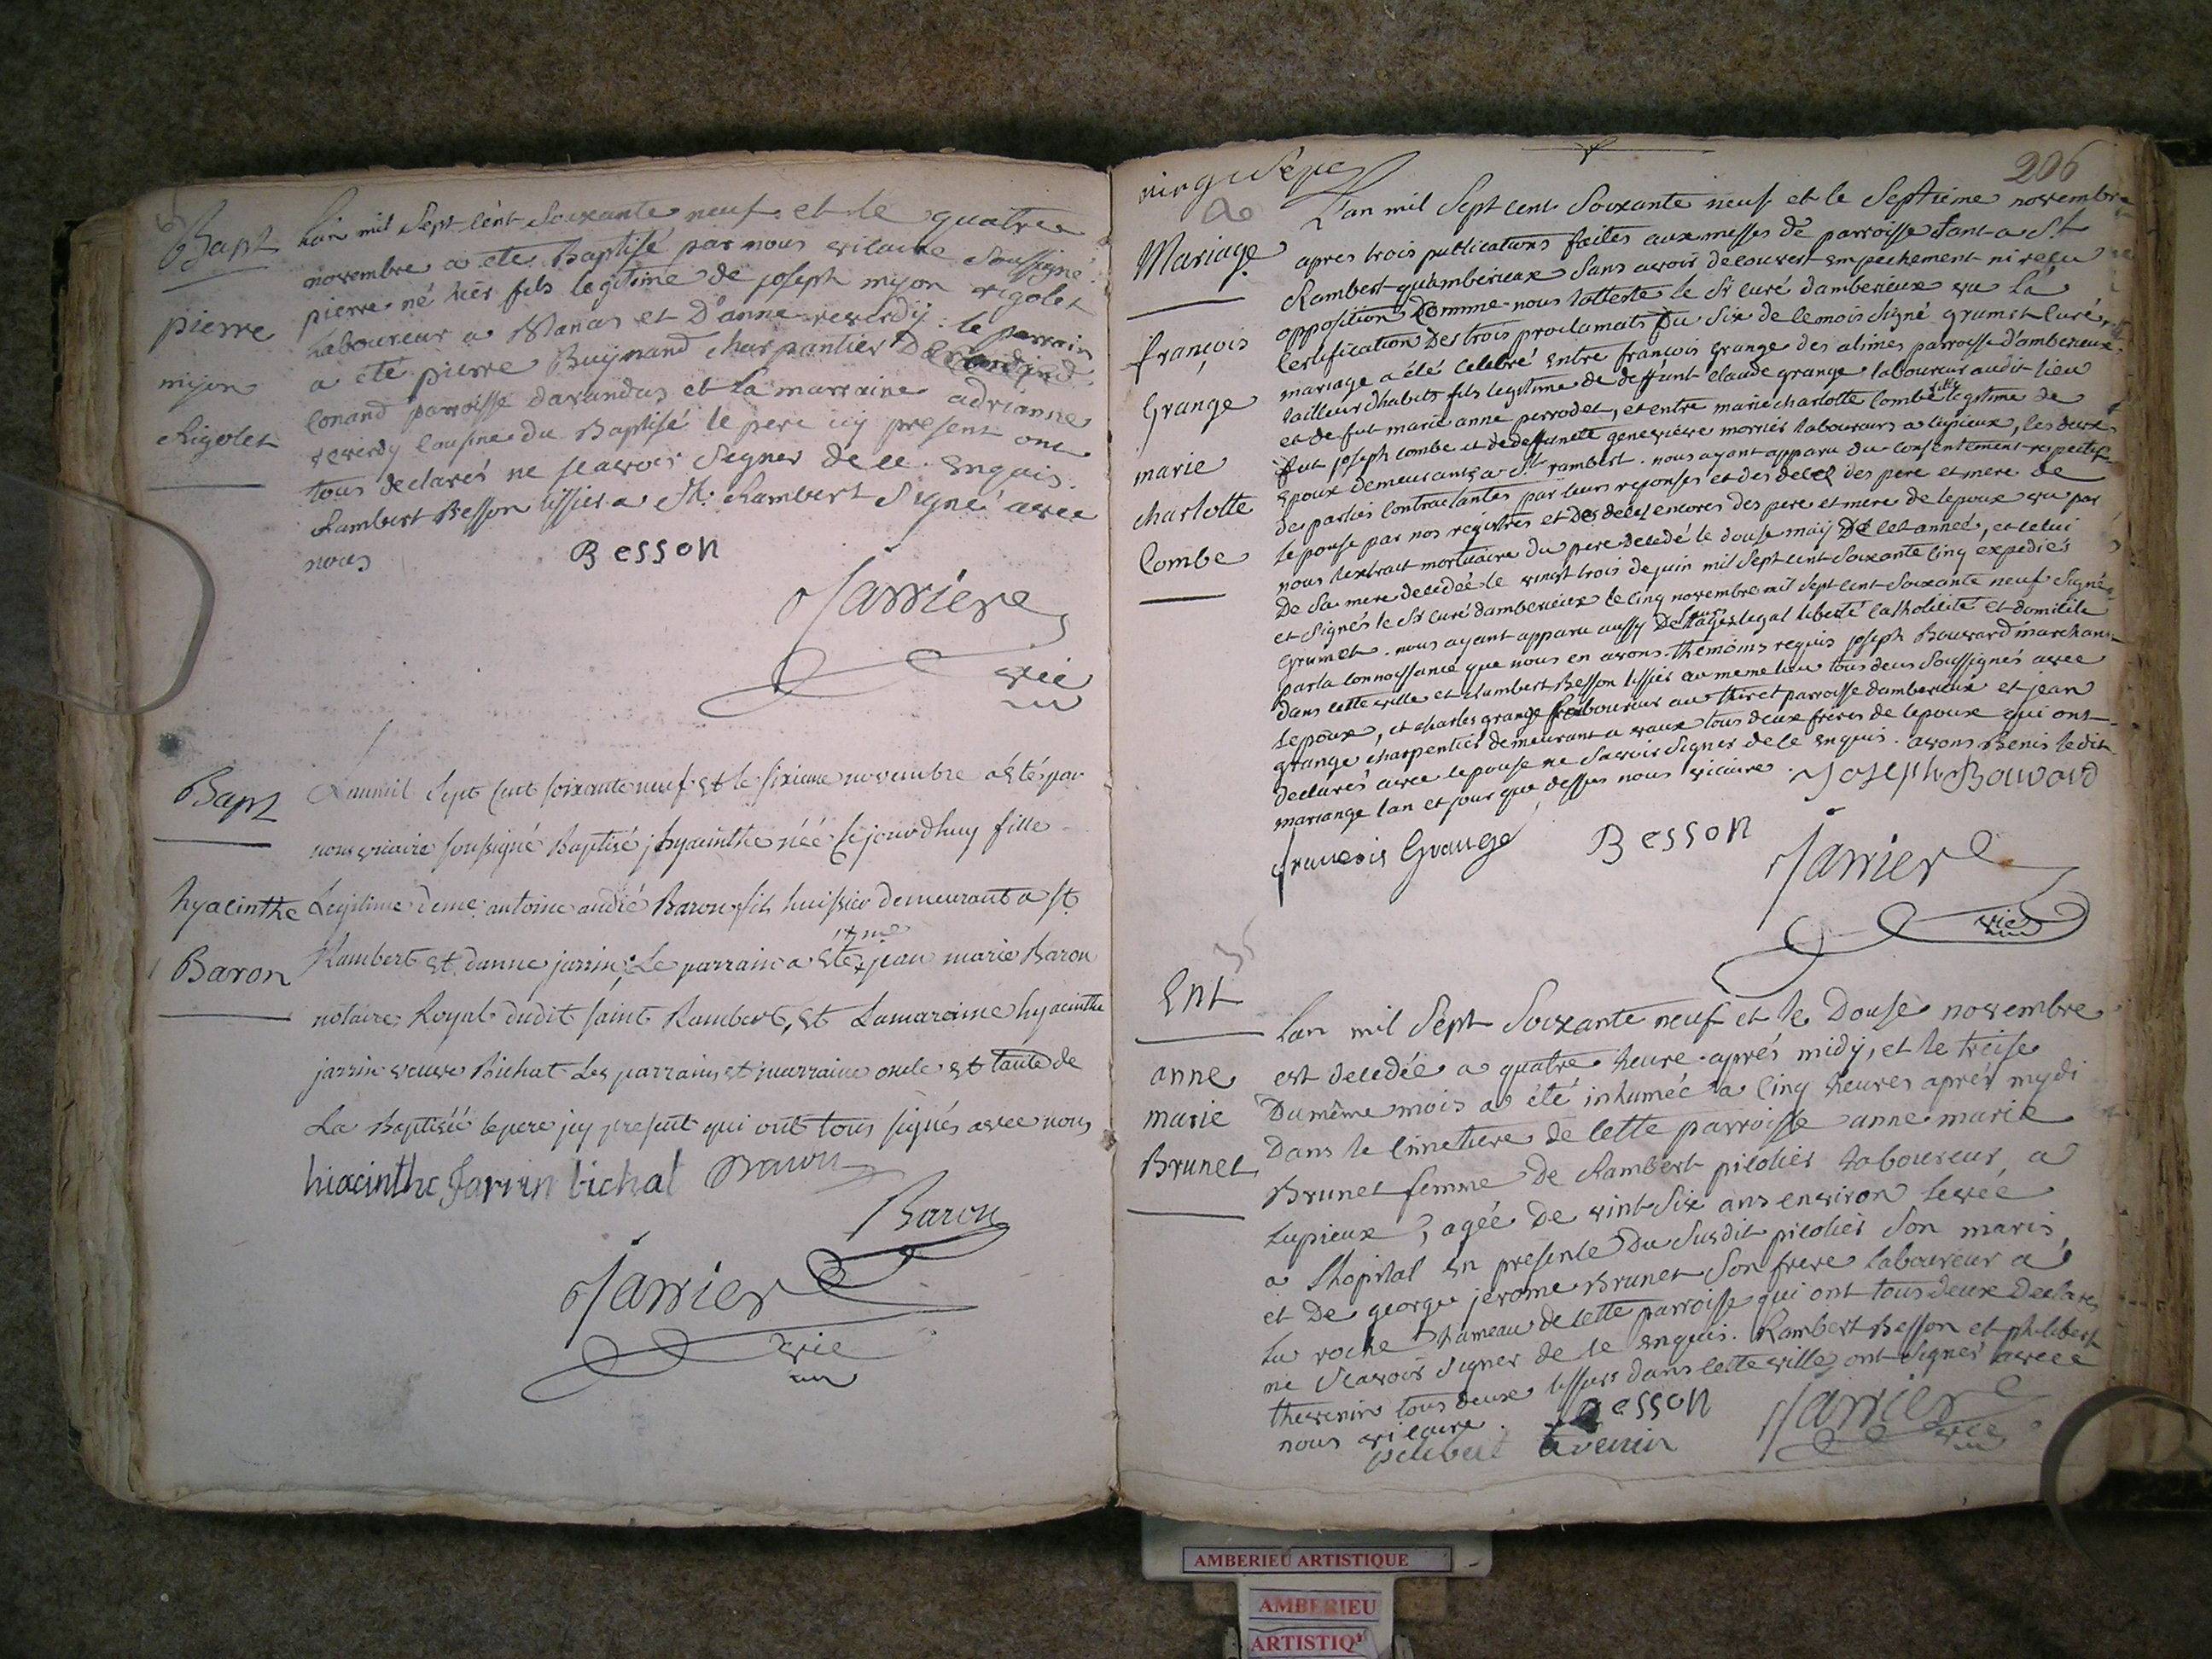 Bapt
pierre
mijon
Rigolet
Lan mil Sept Cent Soixante neuf et le quatre
novembre a ete Baptisé par nous vicaire Soussigné
pierre né hier fils legitime de joseph mijon rigolet
Laboureur a Vanas et D'anne reverdy. le parrain
a eté pierre Buynand charpantier
Conand parroisse darandas et la marraine adrianne
reverdy Cousine du Baptisé le pere icy present ont
tous declarés ne scavoir Signer de ce enquis.
Rambert Besson tissier a St. Rambert Signé avec
nous
Besson
Jarriere
vic
Bapt
hyacinthe
Baron
L'an mil Sept Cent soixante neuf et le sixieme novembre a eté par
nous vicaire soussigné Baptisé hyacinthe née ce jourdhuy fille
Legitime de me. antoine andré Baron fils huissier demeurant a St.
Rambert et danne jarrin; Le parrain a eté me jean marie Baron
notaire Royal dudit saint Rambert, et Lamaraine hyacinthe
jarrin veuve Bichat Les parrains et marraine oncle et tante de
La Baptisée le pere icy present qui ont tous signés avec nous
hiacinthe Jarrin bichat Baron
Baron
Jarriere
vic
206
Mariage
françois
Grange
marie
charlotte
Combe
L'an mil Sept cent Soixante neuf et le Septieme novembre
apres trois publications faites aux messes de parroisse tant a St
Rambert qu'amberieux Sans avoir decouvert empechement ni recu
opposition Comme nous l'atteste le Sr curé damberieux vu la
Certification Des trois proclamats Du Six de ce mois Signé grumet Curé,
mariage a été Celebré entre francois grange des alimes parroisse d'amberieux
tailleur d'habits fils legitime de deffunt claude grange laboureur audit lieu
et de fut marie anne perrodet, et entre marie charlotte Combe fille legitime de
fut joseph combe et de deffuncte genevieve mornier laboureurs a lupieux, les deux
epoux demeurants a St rambert. nous ayant apparu du consentement respectif
de parties Contractantes par leurs reponses et des decés des pere et mere de
lepouse par nos registres et Des decés encores des pere et mere de lepoux vu par
nous lextrait mortuaire du pere decedé le douse may De cet année, et celui
De Sa mere decedée le vingt trois de juin mil Sept cent Soixante Cinq expediés
et Signés le Sr curé damberieux le cinq novembre mil Sept cent Soixante neuf Signé
Grumet. nous ayant apparu aussy De leur âge legal liberté Catholicité et domicile
par la connoissance que nous en avons. themoins requis joseph Bouvard marchand
dans cette ville et Rambert Besson tissier au meme lieu tous deux Soussignés avec
lepoux, et charles grange laboureur au tiret parroisse damberieux et jean
grange charpentier demeurant a vaux tous deux freres de lepoux qui ont
declarés avec lepouse ne Savoir Signer de ce enquis. avons Benis ledit
mariange lan et jour que dessus nous vicaire. Joseph Bouvard
francois Grange Besson Jarriere
vic
Ent
anne
marie
Brunet
Lan mil Sept Soixante neuf et le Douse novembre
est decedée a quatre heure aprés midy, et le treise
Du même mois a été inhumée a Cinq heures aprés mydi
Dans le Cimetiere de Cette parroisse anne marie
Brunet femme de Rambert picolier laboureur a
Lupieux, agée De vint Six ans environ levée
a Lhopital en presence Du Susdit picolier Son maris
et De george jerome Brunet Son frere laboureur a
La roche hameau de cette parroisse qui ont tous deux Declarés
ne Scavoir Signer de ce enquis. Rambert Besson et philibert
thevenin tous deux tissiers dans cette ville ont signés avec
nous vicaire. Besson Jarriere
vic
AMBERIEU ARTISTIQUE
AMBERIEU
ARTISTIQ